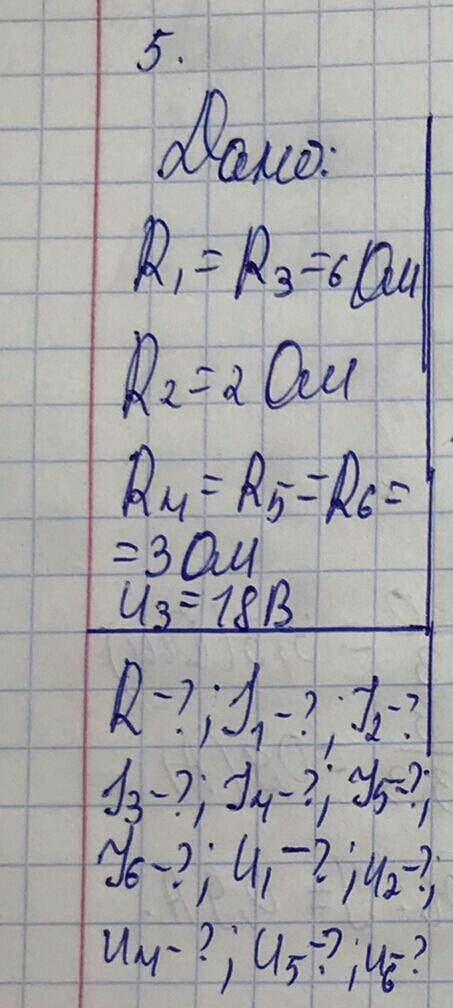 5.
Дано:
R₁ = R₃ = 6 Ом
R₂ = 2 Ом
R₄ = R₅ = R₆ =
= 3 Ом
U₃ = 18 В
R - ?; I₁ - ?; I₂ - ?
I₃ - ?; I₄ - ?; I₅ - ?;
I₆ - ?; U₁ - ?; U₂ - ?;
U₄ - ?; U₅ - ?; U₆ - ?